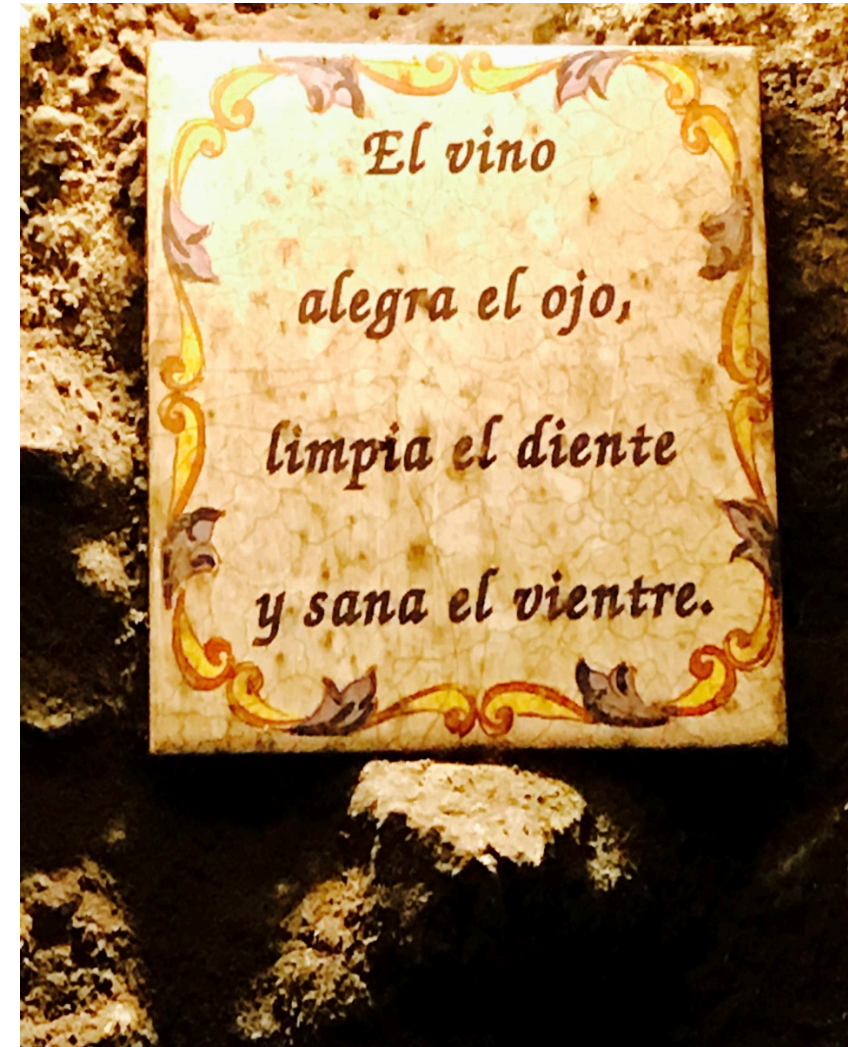 El vino
alegra el ojo,
limpia el diente
y sana el vientre.